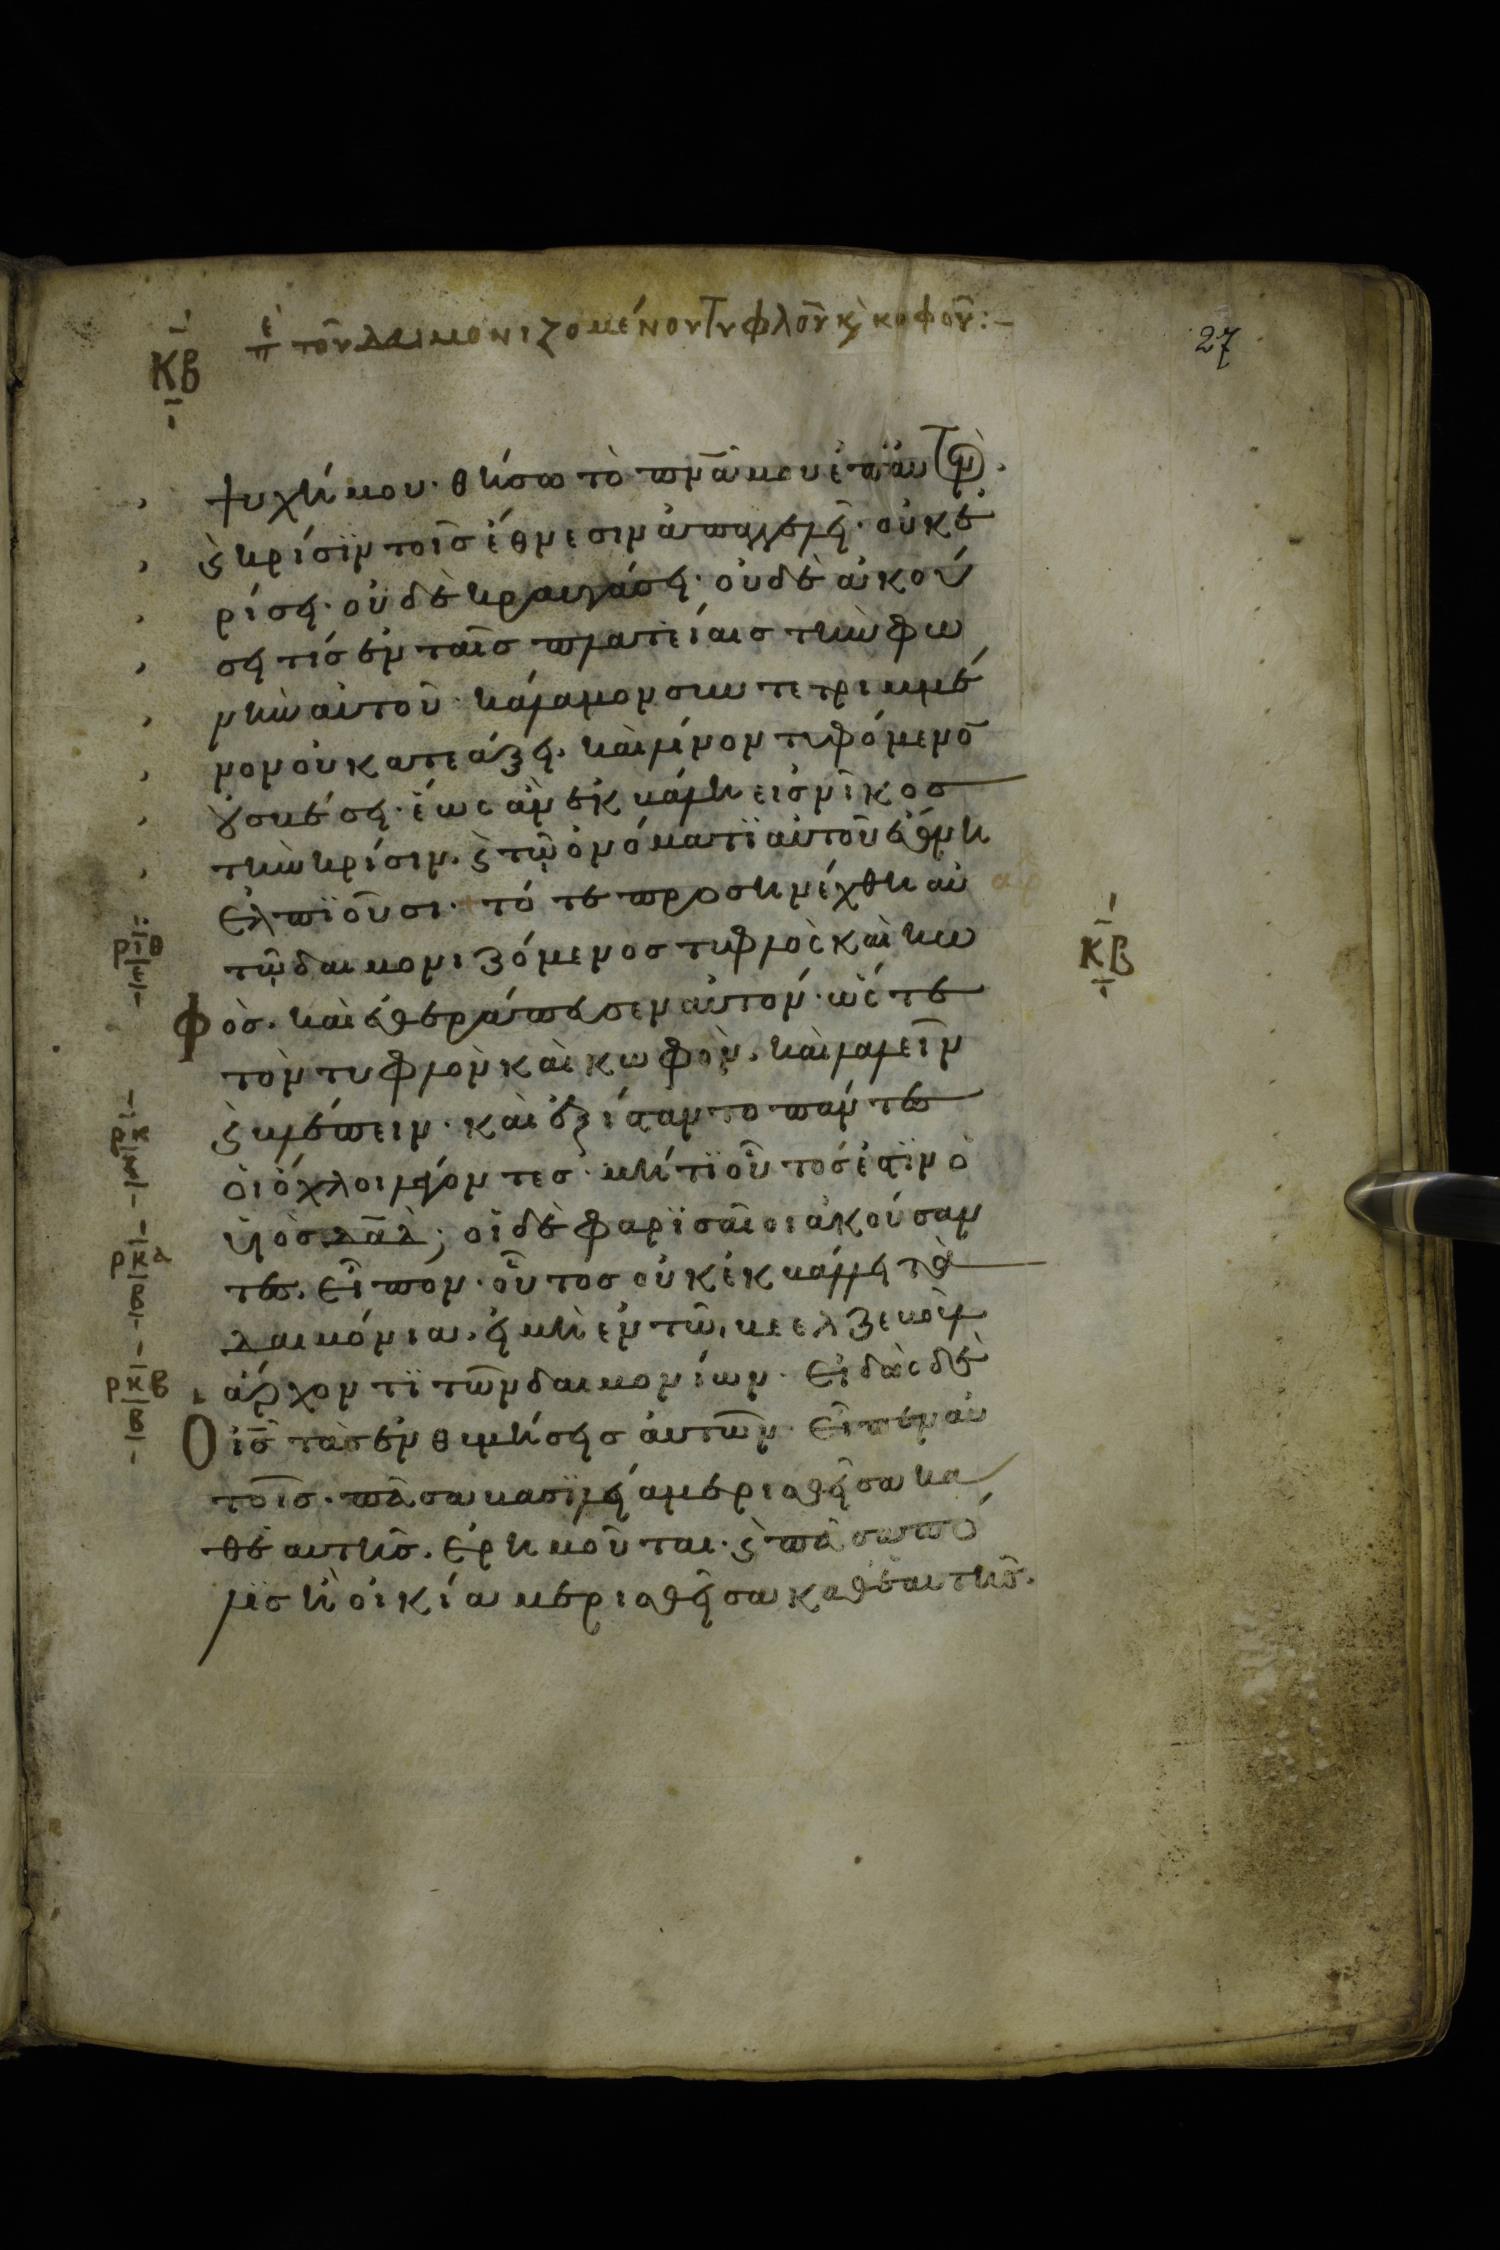 ΚΒ
πε τοῦ δαιμονιζομένου τυφλοῦ κ̀ κοφοῦ:–
27
ψυχή μου· θήσω τὸ πν̄ᾱ μου ἐπ' ἀυτὸν·
ϛ κρίσϊν τοῖς ἔθνεσιν ἀπαγγελεῖ· οὐκ ἐ
ρίσει· οὐδὲ κραυγάσει· οὐδὲ ἀκού
σει τίς ἐν ταῖς πλατείαις τὴν φω
νὴν ἀυτοῦ· κάλαμον συντετριμμέ
νον οὐ κατεάξει· καὶ λίνον τυφόμενο̄
οὐ σβέσει· ἕως ἀν ἐκβάλη εἰς νῖκος
τὴν κρίσιν· ϛ τῶ ὀνόματϊ ἀυτοῦ ἔθνη
ἐλπϊοῦσι· τότε προσηνέχθη αὐ
τῶ δαιμονιζόμενος τυφλὸς καὶ κω
φὸς· καὶ ἐθεράπευσεν ἀυτόν· ὥστε
τὸν τυφλὸν καὶ κωφὸν· καὶ λαλεῖν
ϛ βλέπειν· καὶ ἐξίσταντο πάντες
ὁι ὄχλοι λέγοντες· μήτϊ οὗτος ἐστϊν ὁ
ὑιὸς δᾱδ; οἱ δὲ φαρϊσαῖοι ἀκούσαν
τες· εἶπον· οὗτος οὐκ ἐκβάλλει τὰ
δαιμόνια· εἰ μὴ ἐν τῶ βεελζεβοὺλ
ἄρχοντϊ τῶν δαιμονίων· εἰδὼς δὲ
ὁ ῑς̄ τὰς ἐνθυμήσεις ἀυτῶν· εἶπεν αὐ
τοῖς· πᾶσα βασϊλεία μερισθεῖσα κα
θ' ἑαυτῆς· ἐρημοῦται· ϛ πᾶσα πό
λϊς ἢ οἰκία μερισθεῖσα καθ' ἑαυτῆς·
ριθ
ε
ρκ
ρκα
β
ρκβ
β
ΚΒ